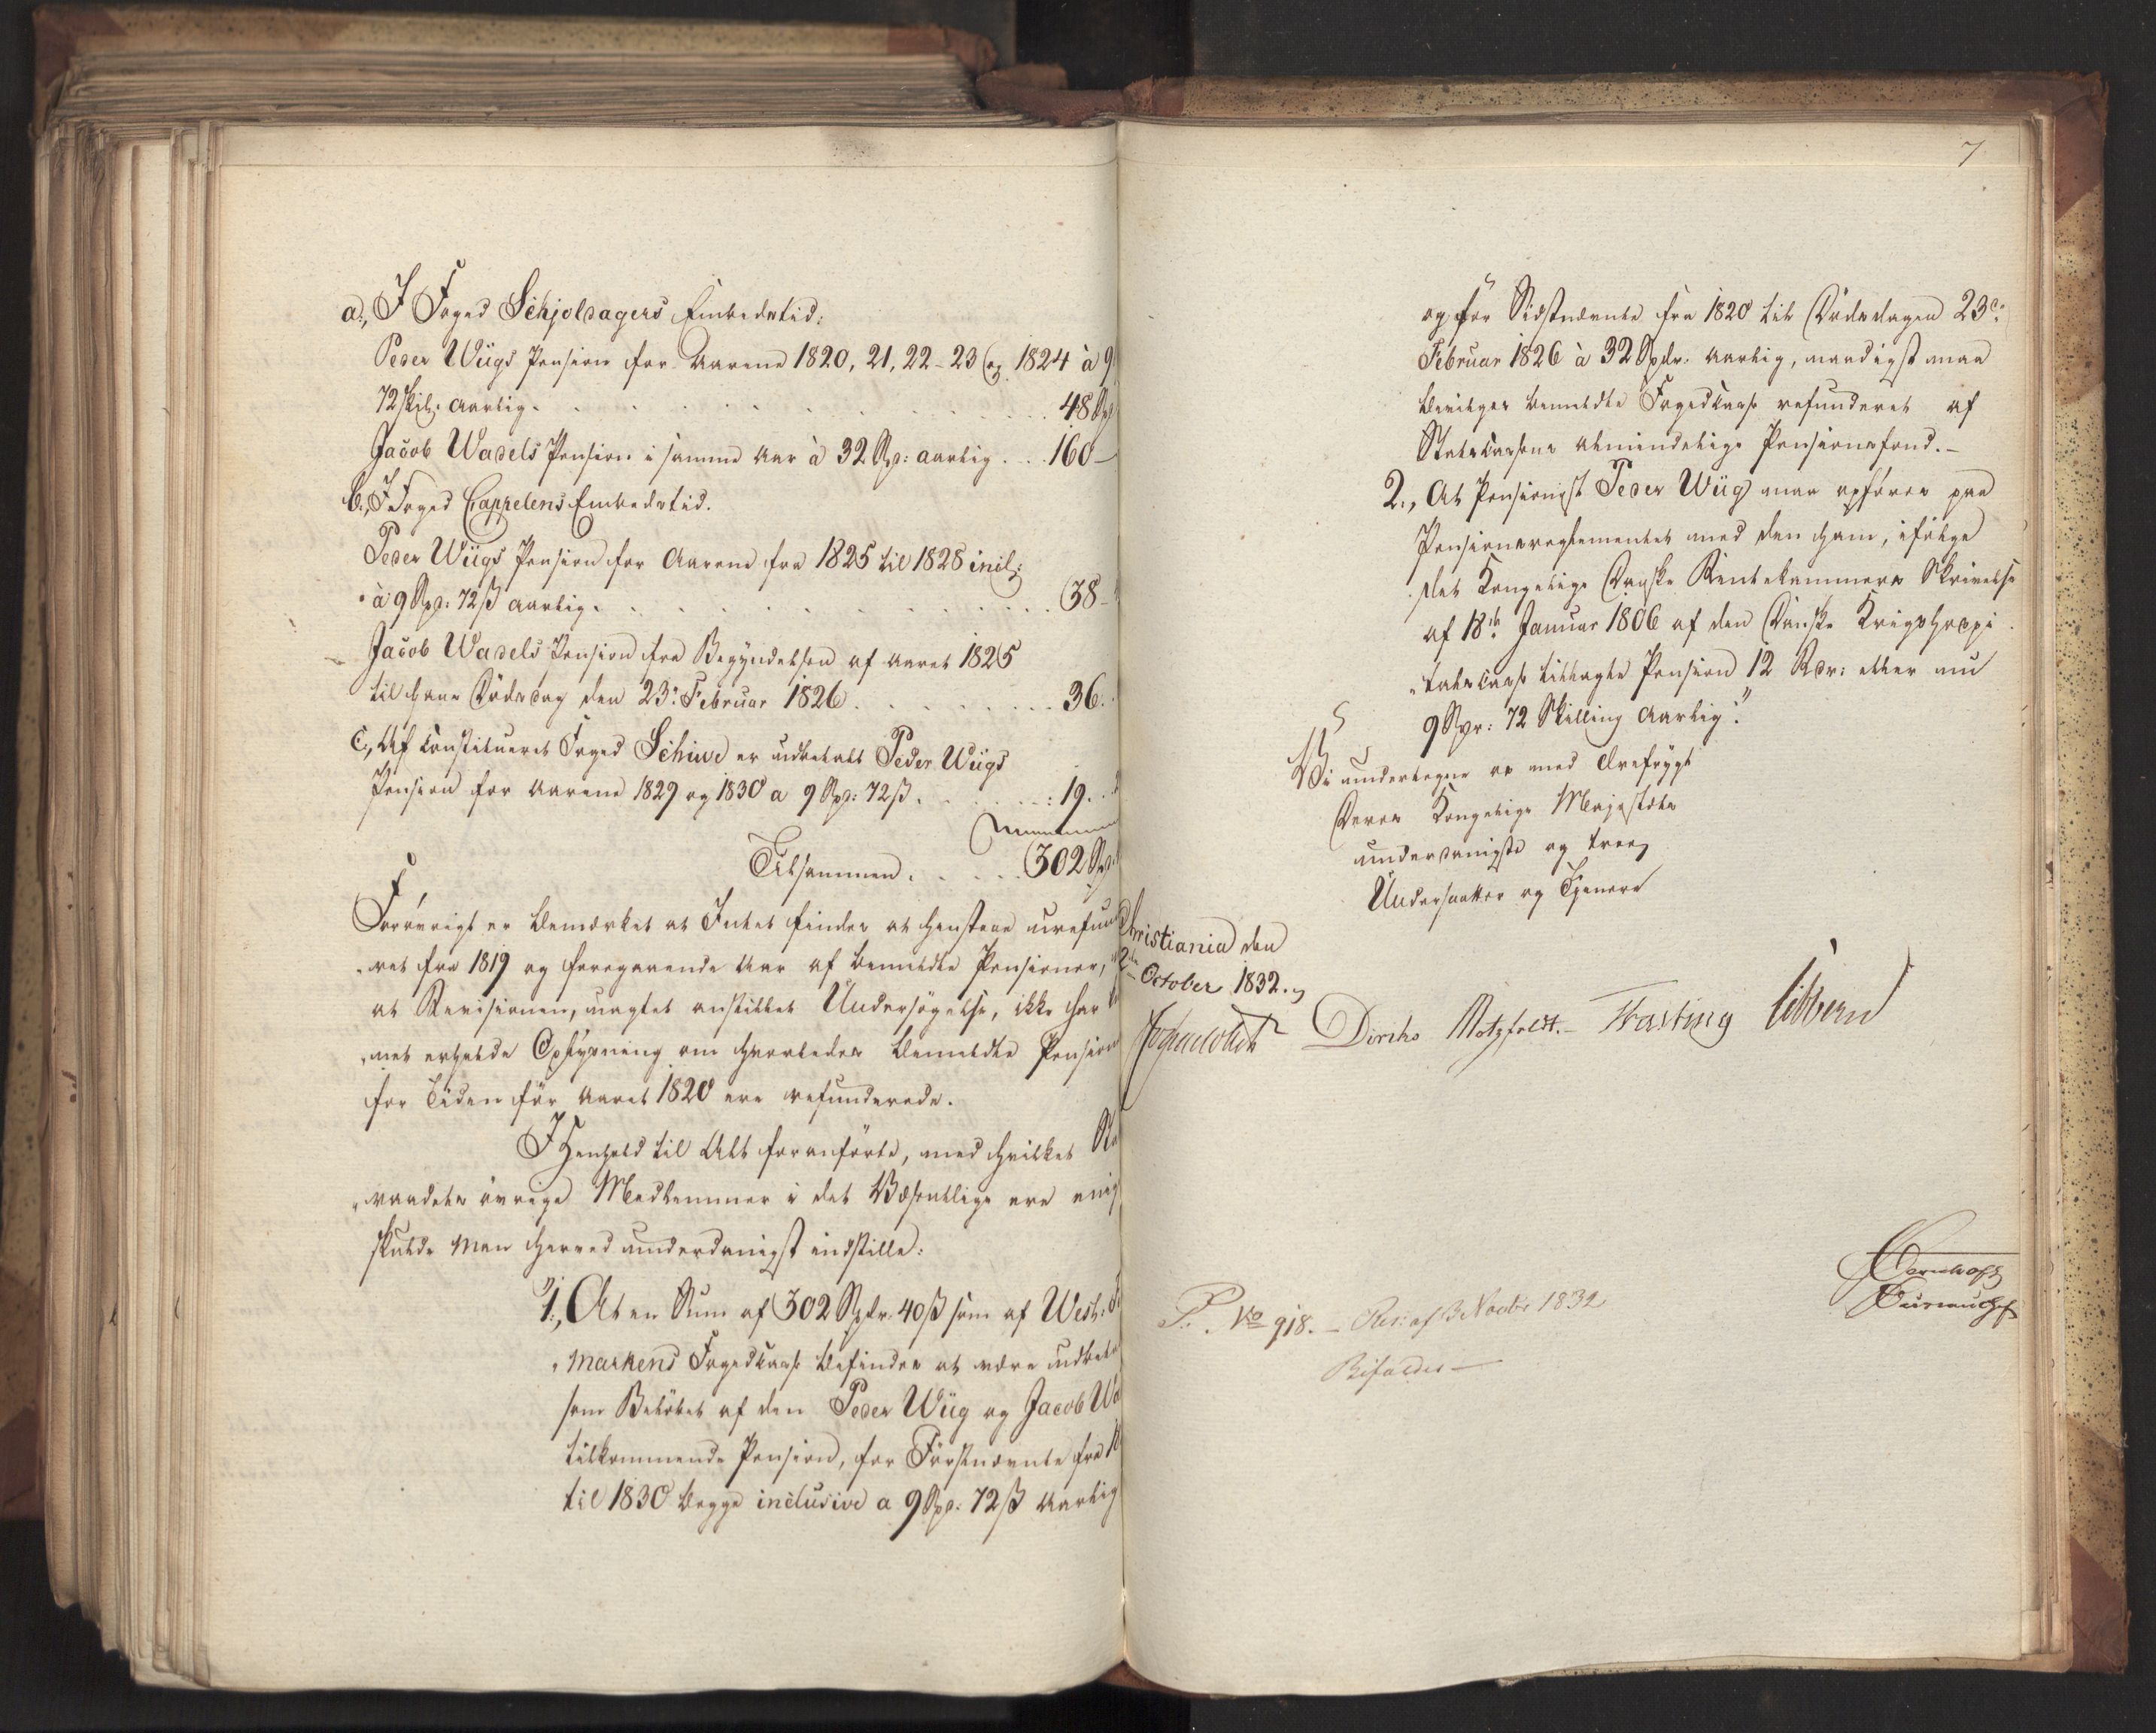 a., I Foged Schjoldagers Embedstid:
Peder Wiigs Pension for Aarene 1820, 21, 22 - 23 og 1824 à 9
72 skil: aarlig . . . . . . . . . . 48 Spd
Jacob Wadels Pension i samme Aar à 32 Spd: aarlig . . . 160 –
b., I Foged Cappelens Embedstid.
Peder Wiigs Pension for Aarene fra 1825 til 1828 incl:
à 9 Spd: 72 ß aarlig . . . . . . . . . . 38 –
Jacob Wadels Pension fra Begyndelsen af Aaret 1825
til hans Dødsdag den 23: Februar 1826 . . . . . . . . 36 . .
c., Af constitueret Foged Schive er udbetalt Peder Wiigs
Pension for Aarene 1829 og 1830 a 9 Spd: 72 ß . . . . . . : 19 . . .
Tilsammen . . . . . 302 Spd
Forøvrigt er bemærket at Intet findes at henstaae urefun
"ret fra 1819 og foregaaende Aar af bemeldte Pensioner,
at Revisionen, uagtet anstillet Undersøgelse, ikke har
"net erholde Oplysning om hvorledes bemeldte Pension
for Tiden før Aaret 1820 ere refunderede.
I Henhold til Alt foranførte, med hvilket Re
"raadets øvrige Medlemmer i det Væsentlige ere enig
skulde Man herved underdanigst indstille:
"1., At en Sum af 302 Spdr. 40 ß som af West:
"markens Fogedcasse befindes at være udbeta
som Beløbet af den Peder Wiig og Jacob Wa
tilkommende Pension, for Førstnævnte fra
til 1830 begge inclusive a 9 Spd: 72 ß aarlig
7
og for Sidstnævnte fra 1820 til Dødsdagen 23de
Februar 1826 à 32 Spdr. aarlig, naadigst maa
bevilges bemeldte Fogedcasse refunderet af
Statscassens almindelige Pensionsfond. –
2., At Pensionist Peder Wiig maa opføres paa
Pensionsreglementet med den ham, ifølge
det Kongelige Danske Rentekammers Skrivelse
af 18de Januar 1806 af den Danske Krigshospi
"talscasse tillagte Pension 12 Rdr: eller nu
9 Spr: 72 Skilling aarlig."
Vi undertegne os med Ærefrygt
Deres Kongelige Majestæts
underdanigste og troe
Undersaatter og Tjenere
Christiania den
2 October 1832.
Diriks Motzfeldt. – Fasting Sibbern
P. No 918. – Res: af 3 Novbr 1832
Bifaldes –
Bureauchef